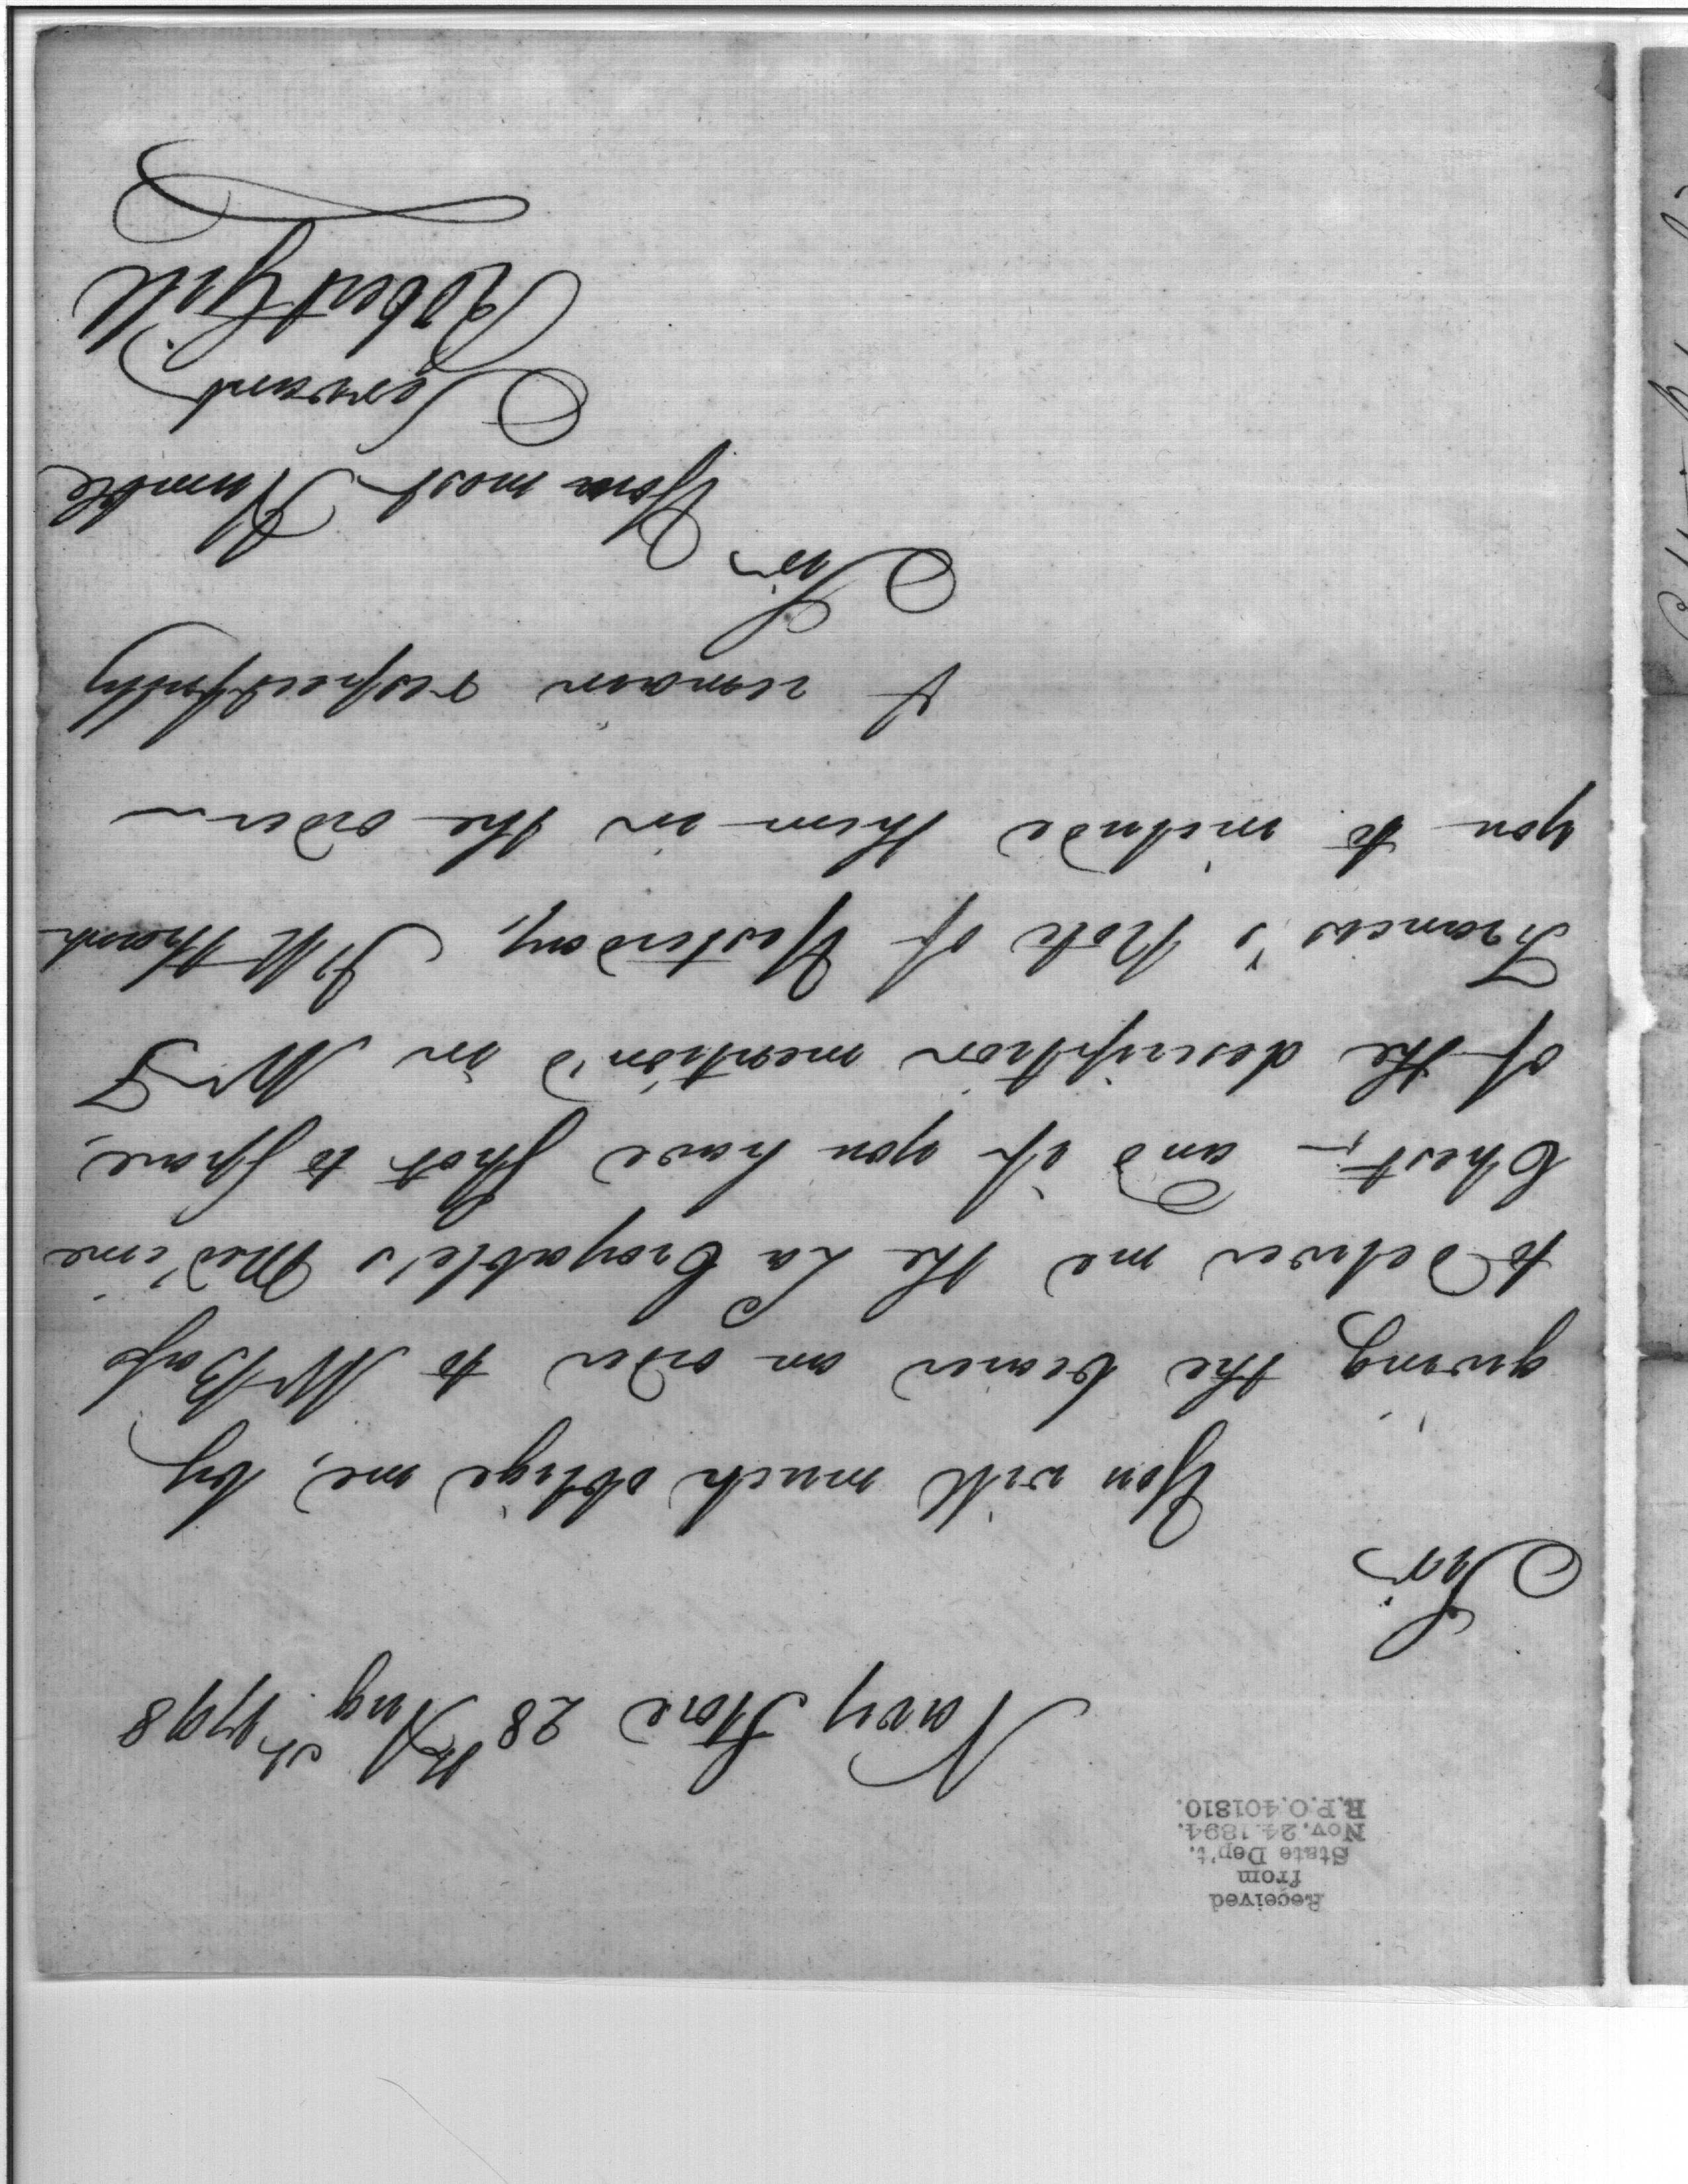 Received
from
State Dep't.
Nov. 24. 1894.
R.P.O. 401810.
Navy Store 28th Augst 1798
Sir
You will much oblige me, by
giving the bearer an order to Mr
to Deliver me the La Croyable's Med'cine
Chest,- and if you have Shot to Spare,
of the description mention'd in Mr T
Francis's Note of Yesterday, I'll thank
you to include them in the order
I remain respectfully
Sir
Your most Humble
Servant
Robert Gill